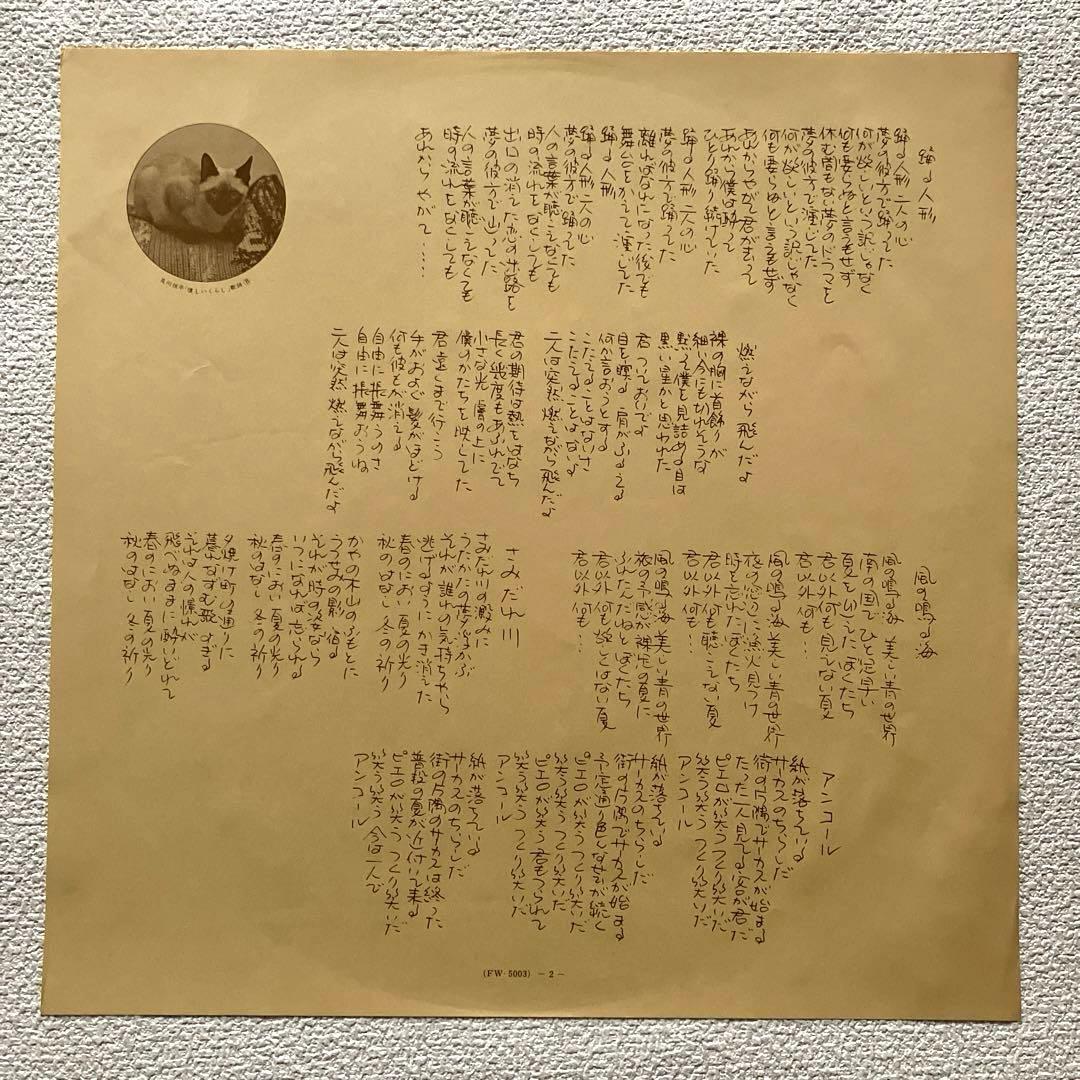 踊る人形
踊る人形 二人の心
夢の彼方で踊ってた
何が欲しいという訳じゃなく
何も要らぬと言うもせず
休む間もない夢のドラマを
夢の彼方で演じてた
何が欲しいという訳じゃなく
何も要らぬと言うもせず
あれからやがて君が去って
あれから僕は酔って
ひとり踊り続けていた
踊る人形 二人の心
夢の彼方で踊った
離ればなれになった後でも
舞台をかえて演じてた
踊る人形
踊る人形 二人の心
夢の彼方で踊ってた
人の言葉が聴こえなくても
時の流れをなくしても
出口の消えた恋の
夢の彼方で
人の言葉が聴こえなくても
時の流れをなくしても
あれから やがて・・・・・
燃えながら 飛んだよ
裸の胸に首飾りが
細い今にも切れそうな
黙って僕を見詰める目は
黒い星かと思われた
君 つっておいでよ
目を瞑る 肩がふるえる
何か言おうとする
こたえることはないさ
こたえることはないよ
二人は突然 燃えながら飛んだよ
君の期待は熱をはなち
長く幾度もあふれでて
小さな光 膚の上に
僕のかたちを映してた
君 遠くまで行こう
手がおよぐ 髪がほどける
何も彼もが消える
自由に振舞うのさ
自由に振舞おうね
二人は突然 燃えながら飛んだよ
風の鳴る海
風の鳴る海 美しい青の世界
南の国で ひと足早い
夏をむかえたぼくたち
君以外何も見えない夏
君以外何も・・・
風の鳴る海 美しい青の世界
夜の窓に漁火見つけ
時を忘れたぼくたち
君以外何も聴こえない夏
君以外何も・・・
風の鳴る海 美しい青の世界
夜の予感が裸足の夏に
ふれたんだねと ぼくたち
君以外何も欲しくはない夏
君以外何も・・・
さみだれ川
さみだれ川の澱みに
うたかたの夢浮かぶ
それが誰れの気持ちやら
逃げるようにかき消えた
春のにおい 夏の光り
秋のはなし 冬の祈り
かやの木山のふもとに
うつせみの影 宿る
それが時の姿なら
いつになれば忘られる
春のにおい 夏の光り
秋のはなし 冬の祈り
夕焼け町の通りに
暮れなずむ歌 すぎる
それは人の憧れか
飛べぬままに酔いどれて
春のにおい 夏の光り
秋のはなし 冬の祈り
アンコール
紙が落ちている
サーカスのちらしだ
街の片隅でサーカスが始まる
たった一人見てる客が君だ
ピエロが笑う つくり笑いだ
笑う笑う つくり笑いだ
アンコール
紙が落ちている
サーカスのちらしだ
街の片隅でサーカスが始まる
予定通り色んな芸が続く
ピエロが笑う つくり笑いだ
笑う笑う つくり笑いだ
ピエロが笑う 君もつられて
笑う笑う つくり笑いだ
アンコール
紙が落ちている
サーカスのちらしだ
街の片隅のサーカスは終った
普段の夏が近付いて来る
ピエロが笑う つくり笑いだ
笑う笑う 今は一人で
アンコール
(FW-5003) -2-